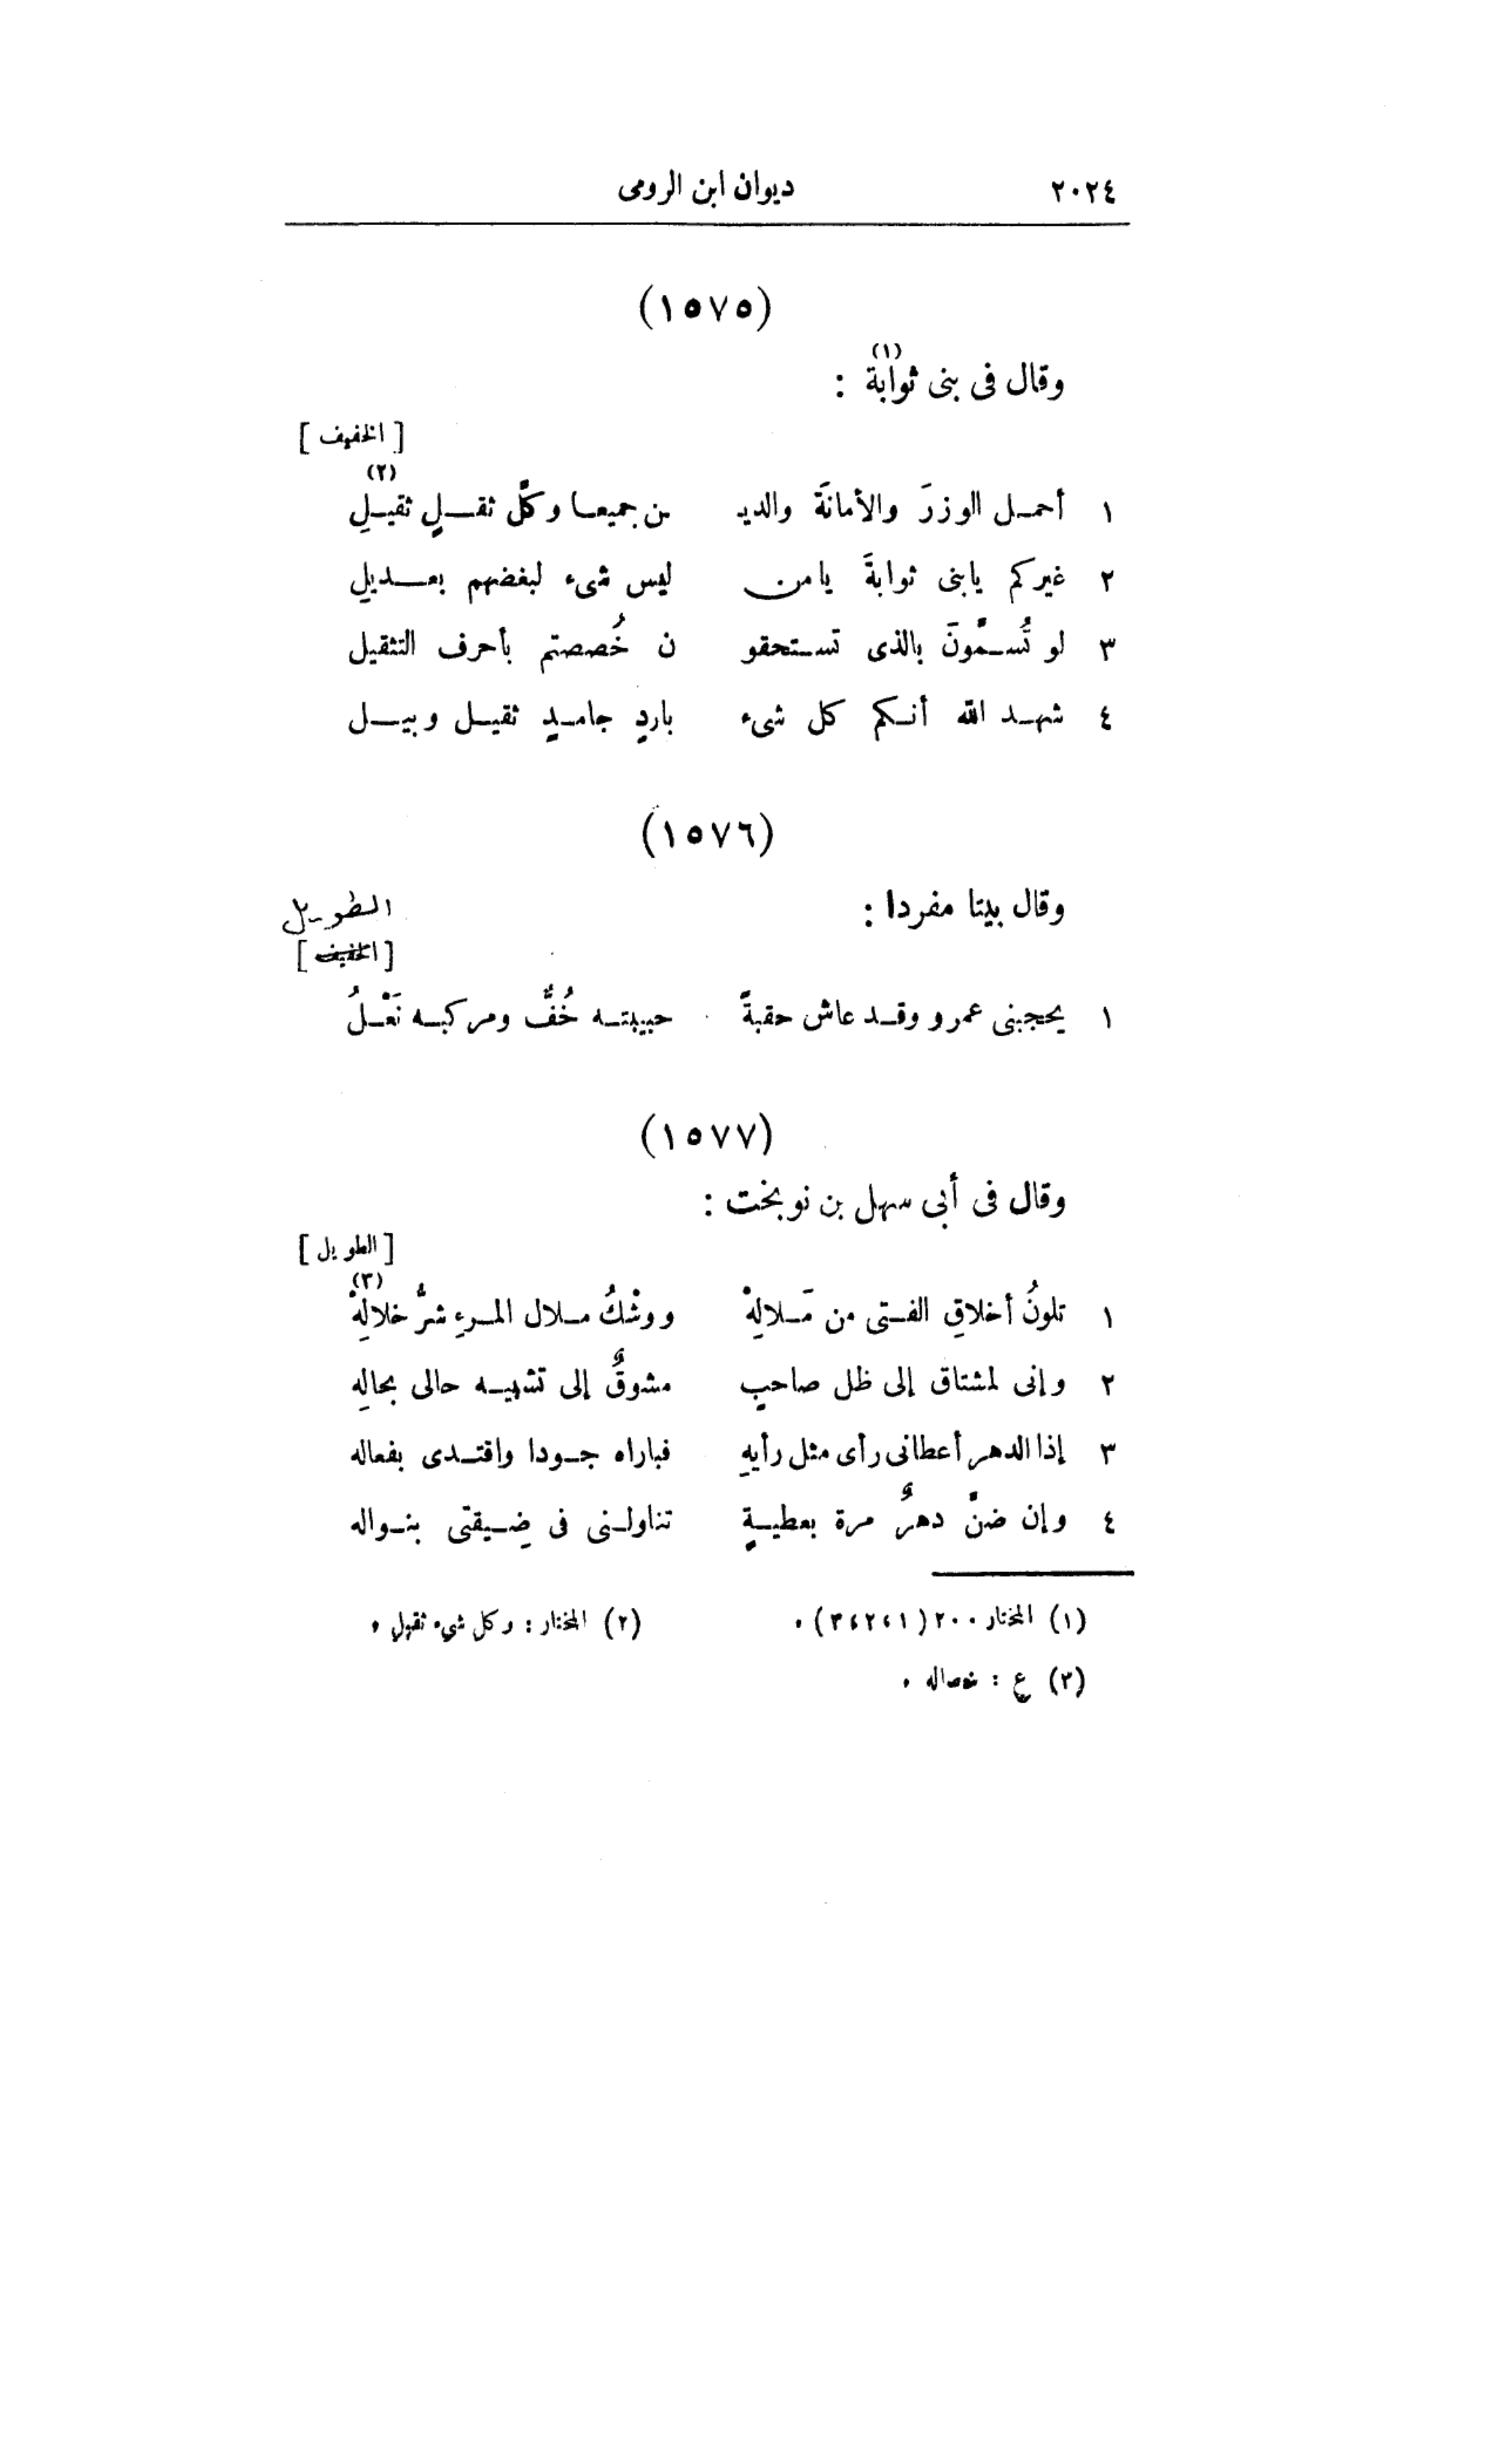 ٢٠٢٤ ديوان ابن الرومى
(١٥٧٥)
وقال فى بنى ثوابة(١) :
[ الخفيف ]
١ أحمل الوزرَ والأمانَة والديـ ـن جميعا وكلَّ ثقلٍ ثقيلِ(٢)
٢ غيركم يابنى ثوابةَ يا من ليس شىء لبغضهم بعديلِ
٣ لو تُسمَّونَ بالذى تستحقو ن خُصصتم بأحرف التثقيل
٤ شهد الله أنكم كل شىء باردٍ جامدٍ ثقيل وبيل
(١٥٧٦)
وقال بيتا مفردا :
الطويل
[ الخفيف ]
١ يحجبنى عمرو وقد عاش حقبةً حبيبته خُفٌّ ومركبه نَعْلُ
(١٥٧٧)
وقال فى أبى سهل بن نوبخت :
[ الطويل ]
١ تلونُ أخلاقِ الفتى من مَلالِهْ ووشْكُ ملال المرءِ شرُّ خلالِهْ(٣)
٢ وإنى لمشتاق إلى ظل صاحبٍ مشوقٌ إلى تشبيه حالى بحالِهِ
٣ إذا الدهر أعطانى رأى مثل رأيهِ فباراه جودا واقتدى بفعاله
٤ وإن ضنَّ دهرٌ مرة بعطيةٍ تناولنى فى ضِيقتى بنواله
(١) المختار ٢٠٠ (١،٢،٣) . (٢) المختار : وكل شىء ثقيل .
(٣) ع :